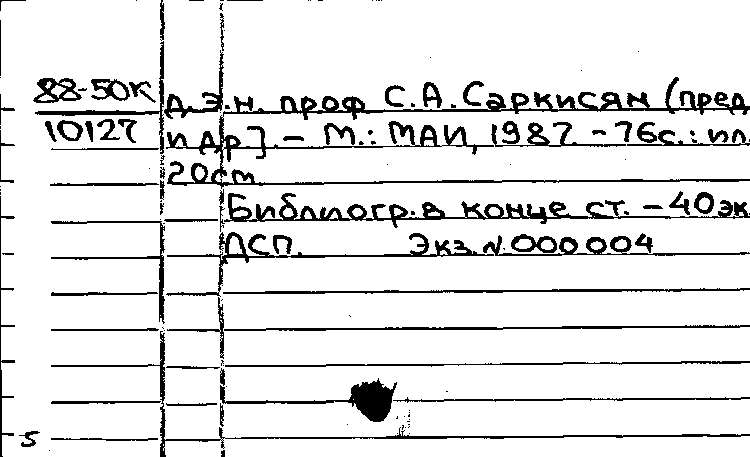 88-50К
10127
д.э.н. проф С.А. Саркисян (пред
и др]. - М.: МАИ, 1987. - 76с.: ил.
20см
Библиогр. в конце ст. - 40 эк
ДСП. Экз. N 000004
5